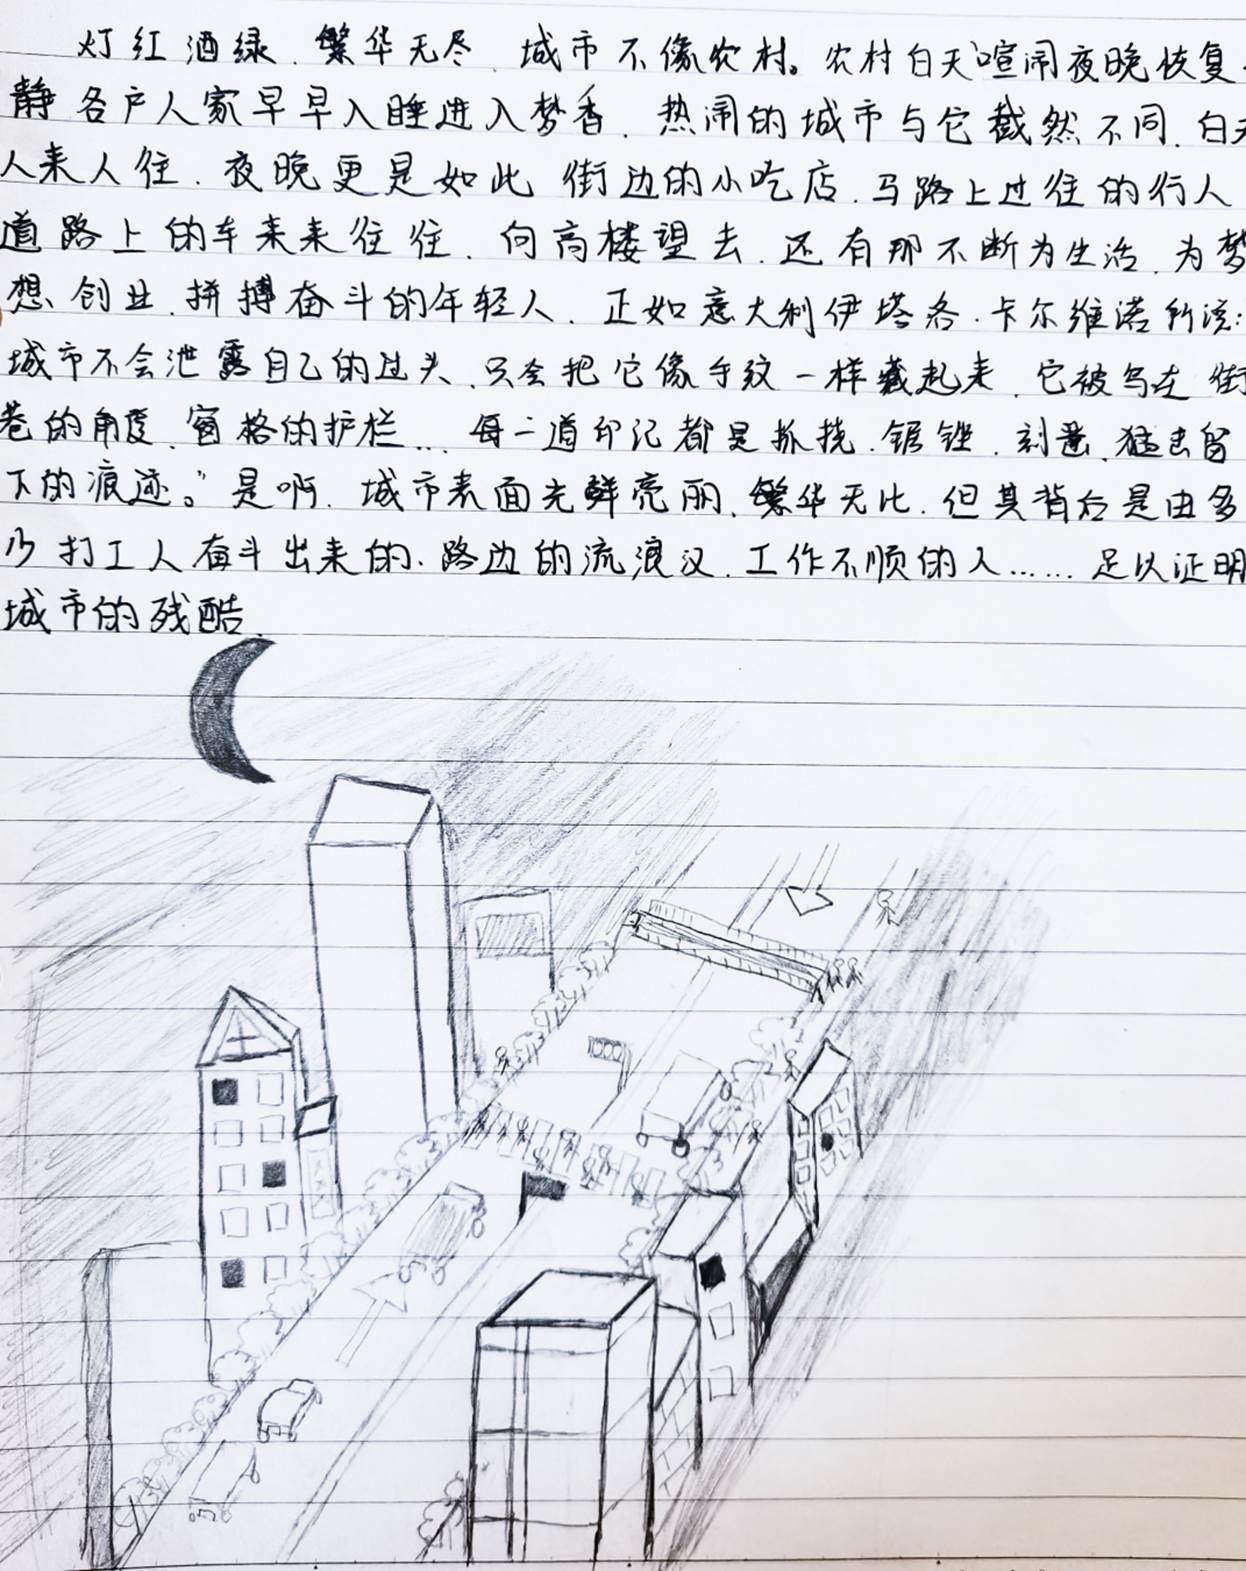 灯红酒绿、繁华无尽、城市不像农村。农村白天喧闹夜晚恢复
静各户人家早早入睡进入梦香、热闹的城市与它截然不同、白天
人来人往、夜晚更是如此 街边的小吃店、马路上过往的行人
道路上的车来来往往、向高楼望去、还有那不断为生活、为梦
想创业、拼搏奋斗的年轻人、正如意大利伊塔洛·卡尔维诺所说:
城市不会泄露自己的过头、只会把它像手纹一样藏起来、它被写在街
巷的角度、窗格的护栏… 每一道印记都是抓挠、锯锉、刻凿、猛击留
下的痕迹。”是啊、城市表面光鲜亮丽、繁华无比、但其背后是由多
少打工人奋斗出来的、路边的流浪汉、工作不顺的人…… 足以证明
城市的残酷、